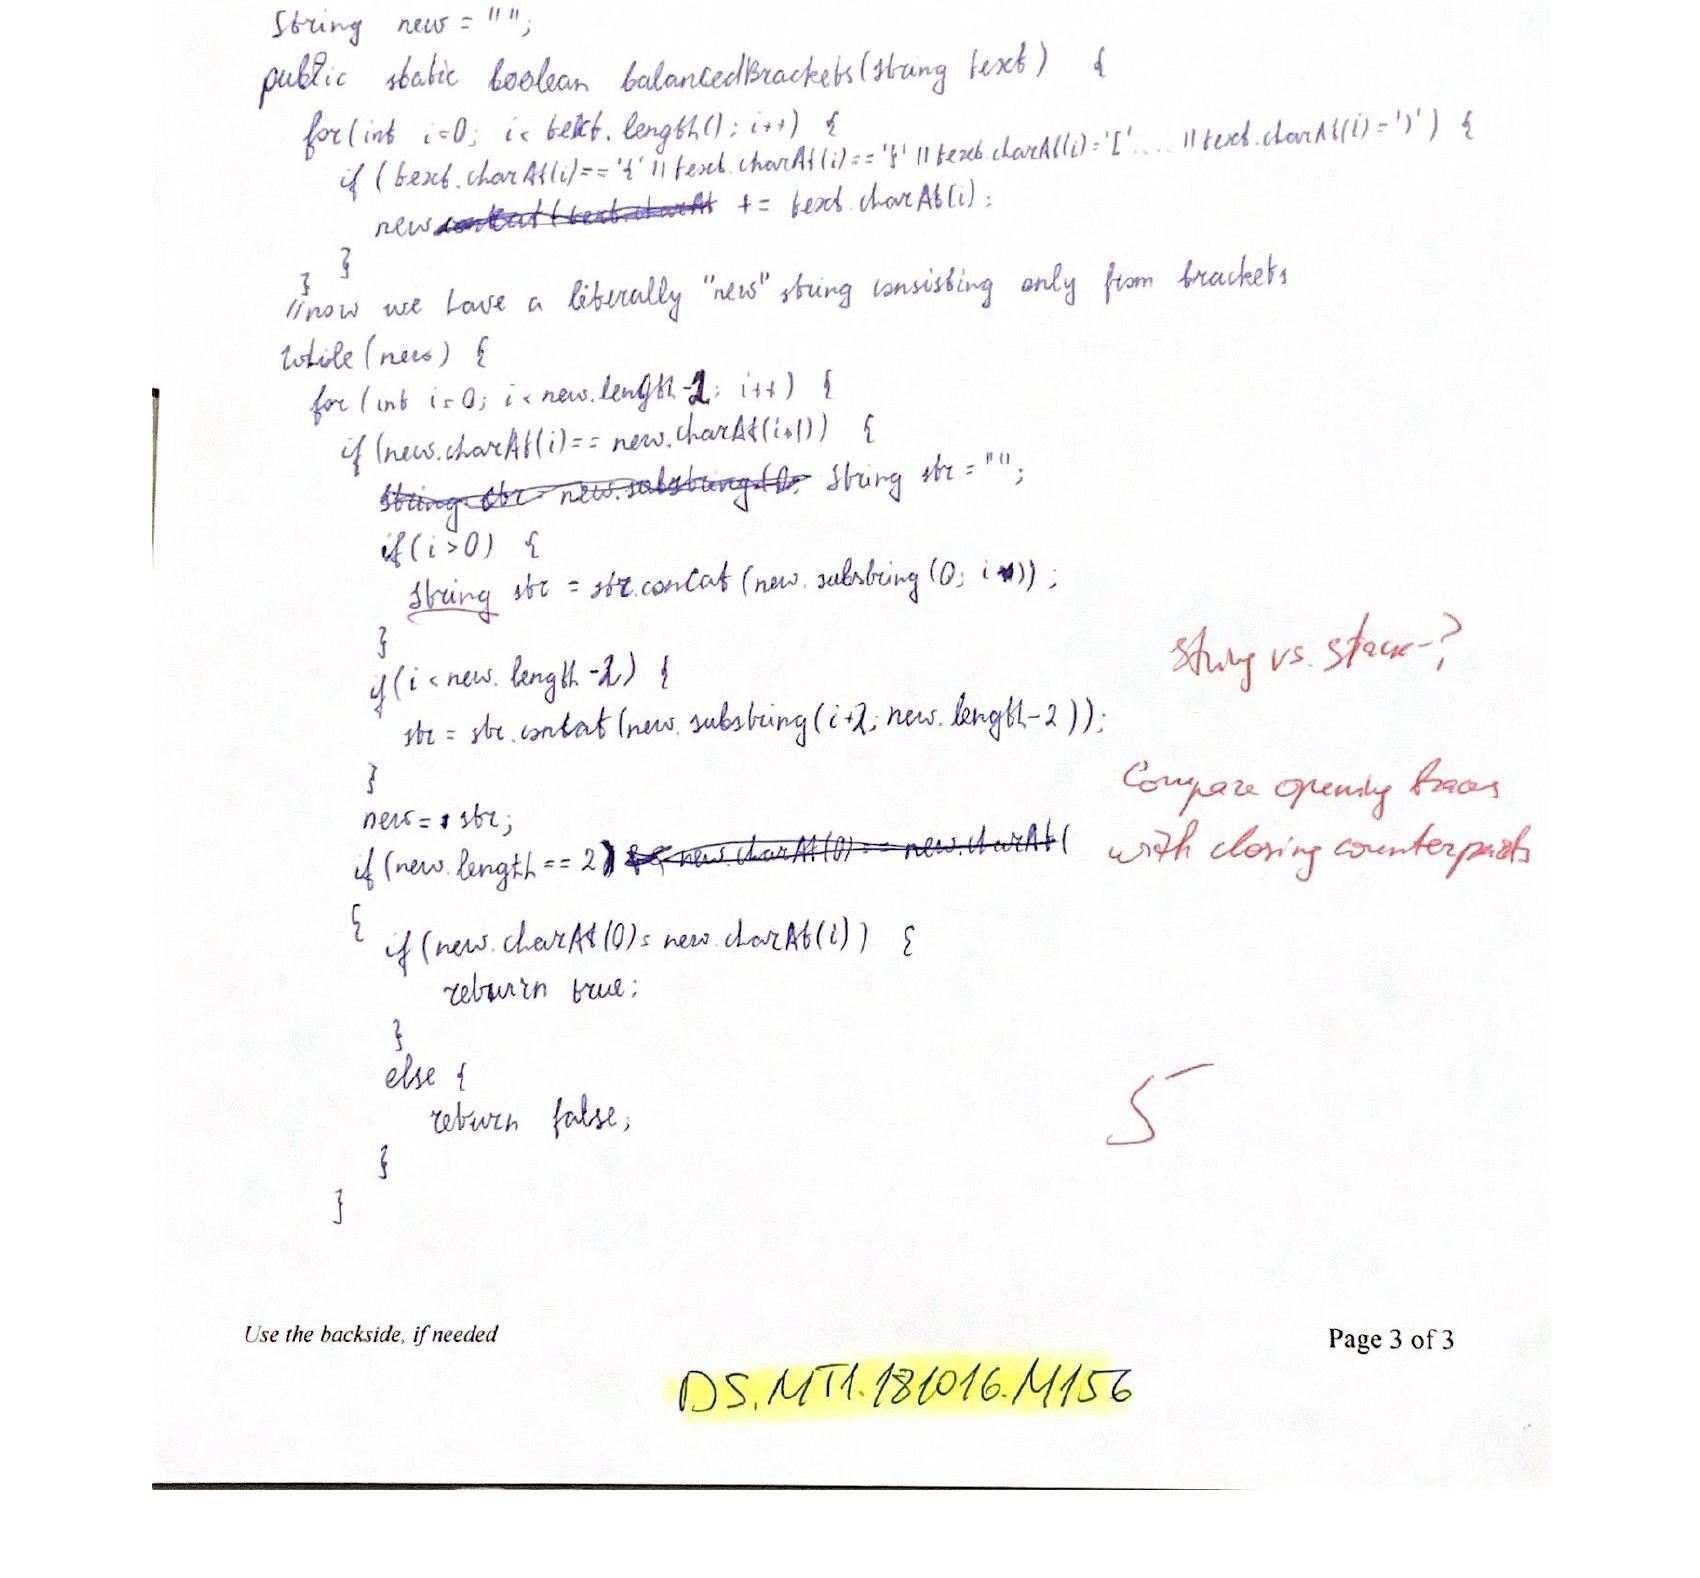 String new = "";
public static boolean balancedBrackets(String text) {
for(int i=0; i< text.length(); i++) {
if (text.charAt(i)=='{' || text.charAt(i)=='}' || text.charAt(i)='['.... || text.charAt(i)=')') {
new += text.charAt(i);
}
}
//now we have a literally "new" string consisting only from brackets
while(new) {
for(int i=0; i<new.length-2; i++) {
if(new.charAt(i)== new.charAt(i+1)) {
String str = new.substring(0; String str = "";
if(i>0) {
String str = str.concat(new.substring(0; i));
}
if(i<new.length-2) {
str = str.contat(new.substring(i+2; new.length-2));
}
new= str;
if(new.length==2) new.charAt(0)==new.charAt(
{
if(new.charAt(0)= new.charAt(i)) {
return true;
}
else {
return false;
}
}
String vs. stack-?
Compare opening braces
with closing counterparts
5
Use the backside, if needed
Page 3 of 3
DS.MT1.181016.M156